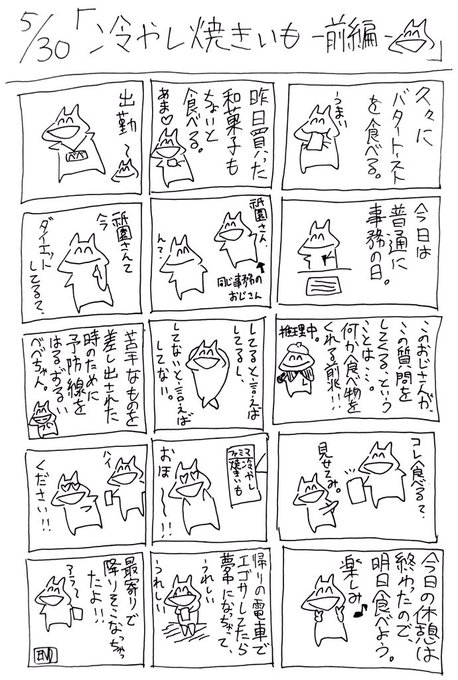 5/30「冷やし焼きいも -前編-」
久々に
バタートースト
を食べる。
うまい
昨日買った
和菓子も
ちゃんと
食べる。
あま♡
出勤〜
今日は
普通に
事務の日。
祇園さん。
同じ事務の
おじさん
ん?
祇園さんて
今
ダイエット
してる?
このおじさんが、
この質問を
してくる、という
ことは…、
何か食べ物を
くれる前兆!!
推理中。
してると言えば
してるし、
してないと言えば
してない。
苦手なものを
差し出された
時のために
予防線を
はるずるい
べべちゃん。
コレ食べる?
見せてみ。
ファミマ冷やし
焼きいも
おほ〜!!
ハイ
ください!!
今日の休憩は
終わったので、
明日食べよう。
楽しみ♪
帰りの電車で
エゴサしてたら
夢中になっちゃって、
うれしい
うれしい
最寄りで
降りそこなっちゃっ
たよ!!
アララ〜
END